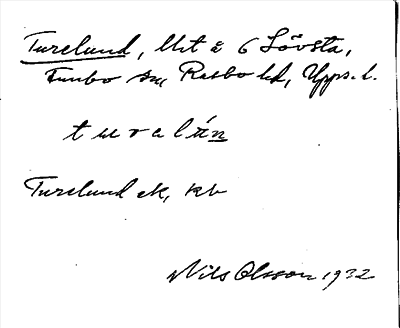 Turelund, Utt å 6 Lövsta,
Funbo sn, Rasbo hd, Upps. l.
turalún
Turelund ek, kb
Nils Olsson 1932